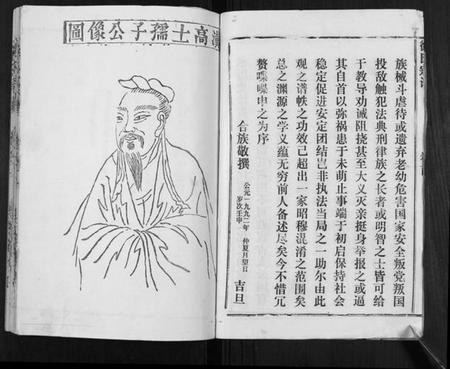 族械斗虐待或遗弃老幼危害国家安全叛党叛国
投敌触犯法典刑律族之长者或明智之士皆可给
于教导劝诫阻挠甚至大义灭亲挺身举报之或逼
其自首以弥祸患于未萌止事端于初启保持社会
稳定促进安定团结岂非执法当局之一助尔由此
观之谱帙之功效已超出一家昭穆混淆之范围矣
总之渊源之学义蕴无穷前人备述尽矣今不惜冗
赘喋喋申之为序
合族敬撰
公元一九九二年
岁次壬申
仲夏月望日
吉旦
高士孺子公像圖